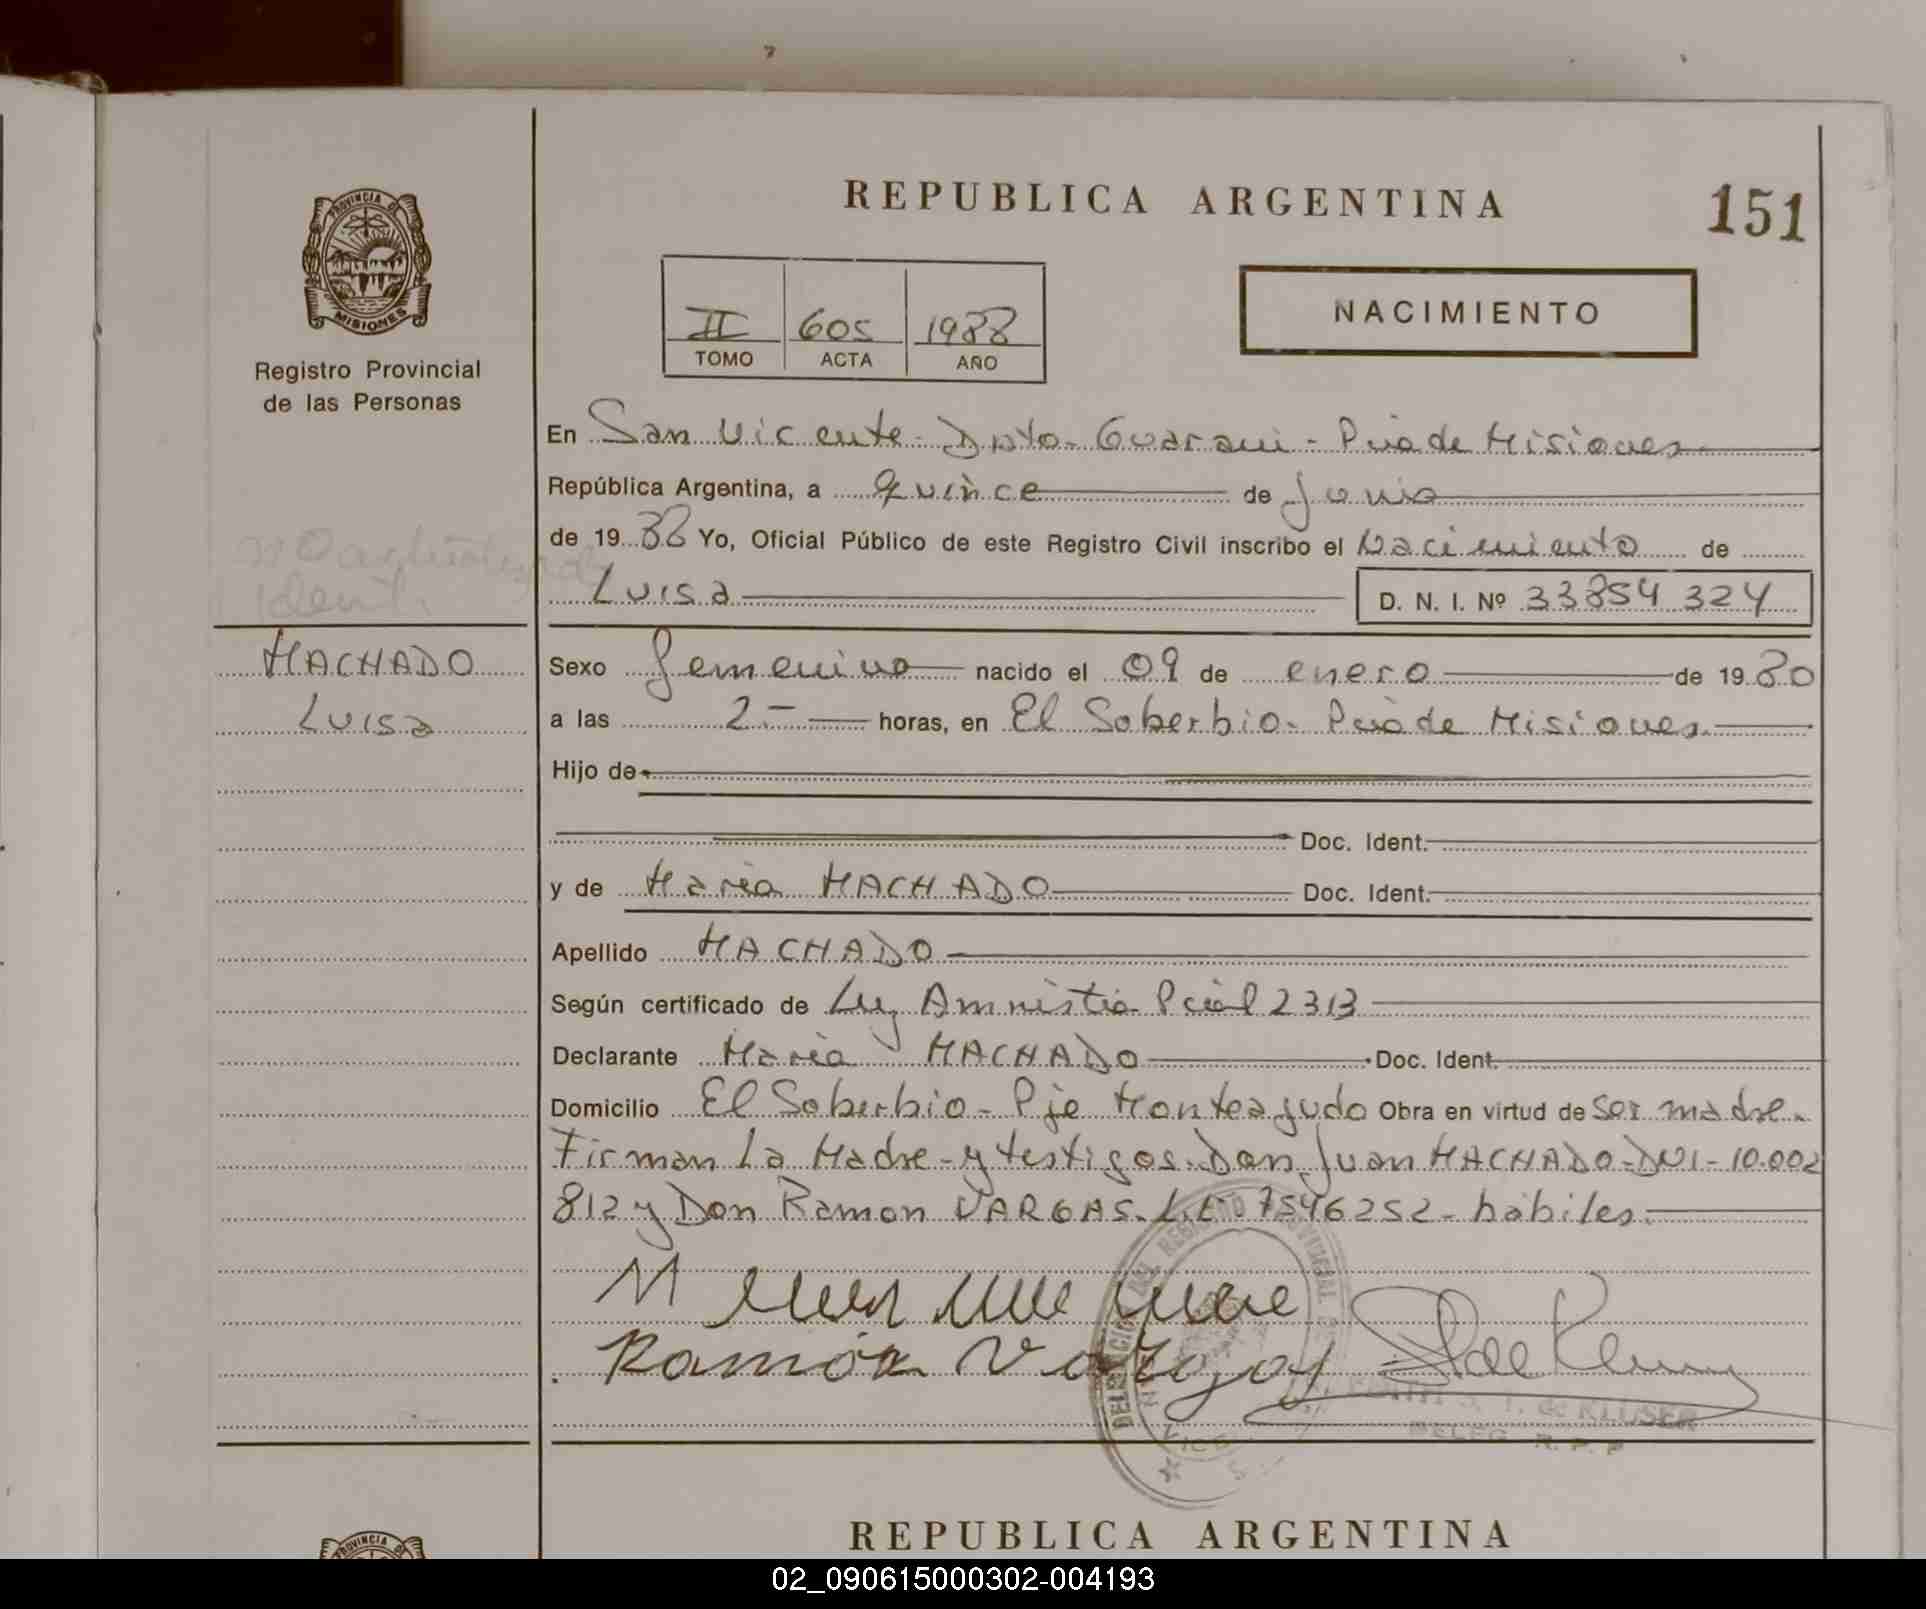 REPUBLICA ARGENTINA
151
PROVINCIA DE
MISIONES
Registro Provincial
de las Personas
II 605 1988
TOMO ACTA AÑO
NACIMIENTO
En San Vicente - Dpto - Guarani - Pcia de Misiones
República Argentina, a quince de Junio
de 19 88 Yo, Oficial Público de este Registro Civil inscribo el Nacimiento de
Luisa D. N. I. Nº 33854 324
Ident.
MACHADO
Luisa
Sexo femenino nacido el 09 de enero de 19 80
a las 2.- horas, en El Soberbio - Pcia de Misiones.
Hijo de
Doc. Ident.
y de Maria MACHADO Doc. Ident.
Apellido MACHADO
Según certificado de Ley Amnistia Pcial 2313
Declarante Maria MACHADO Doc. Ident.
Domicilio El Soberbio - Pje Monteagudo Obra en virtud de ser madre.
Firman La Madre - y testigos. Don Juan MACHADO - DNI - 10.002
812 y Don Ramon VARGAS. L.E 7546252 - hábiles.
Ramón Vargas
de KLUSER
DELEG. R. P. P
REPUBLICA ARGENTINA
PROVINCIA DE
02_090615000302-004193